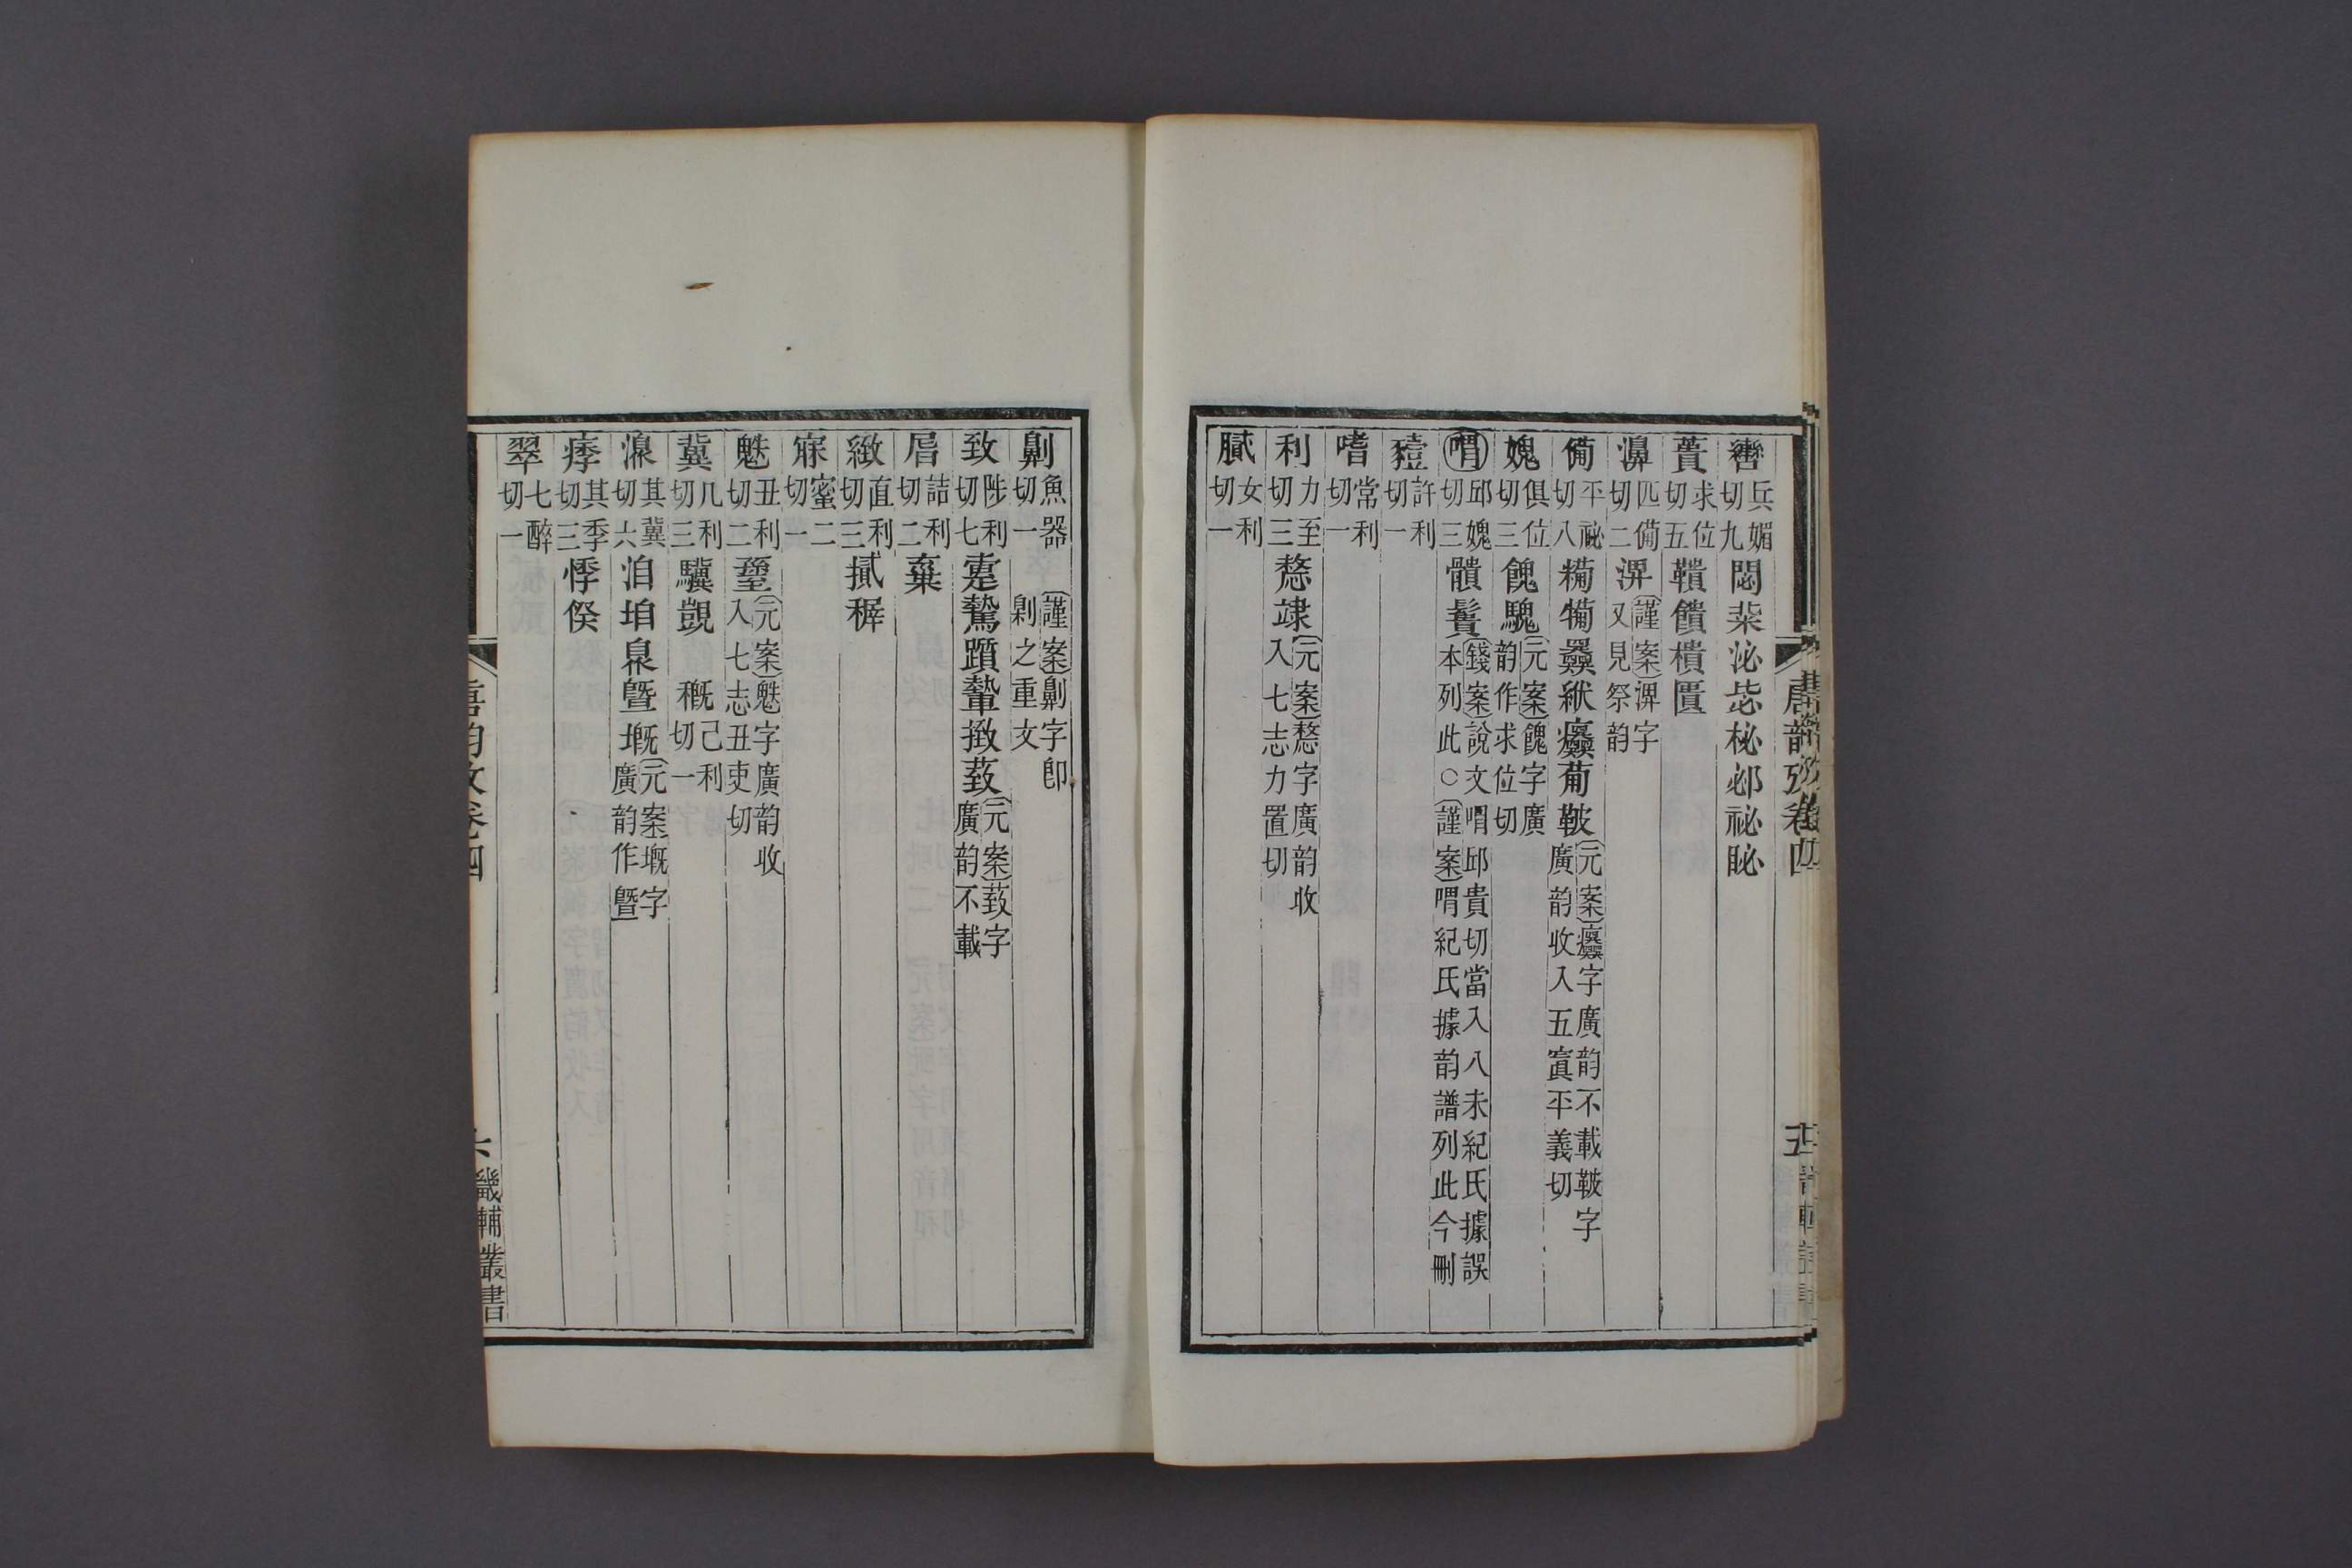 轡兵媚切九閟粊泌毖柲邲祕眍
蕢求位切五鞼饋樻匱
濞匹備切二淠謹案淠字又見祭韵
備平祕切八糒犕奰絥癳葡鞁元案癳字廣韵不載鞁字廣韵收入五寘平義切
媿俱位切三餽騩元案餽字廣韵作求位切
喟邱媿切三髖鬢錢案說文喟邱貴切當入八未紀氏據誤本列此○謹案喟紀氏據韵譜列此今刪
豷許利切一
嗜常利切一
利力至切三 𢟤𥩲元案𢟤字廣韵收入七志力置切
膩女利切一
唐韵攷卷四
五
劓魚器切一謹案劓字卽劓之重文
致陟利切七疐騺躓𨎌㨖䓌元案䓌字廣韵不載
屆詰利切二棄
緻直利切三貳稺
寐蜜二切一
魅丑利切二𡎱元案魅字廣韵收入七志丑吏切
冀几利切三驥覬 穊己利切一
湶其冀切六洎垍臮曁塈元案塈字廣韵作曁
痵其季切三悸㒑
翠七醉切一
唐韵攷卷四
六
畿輔叢書